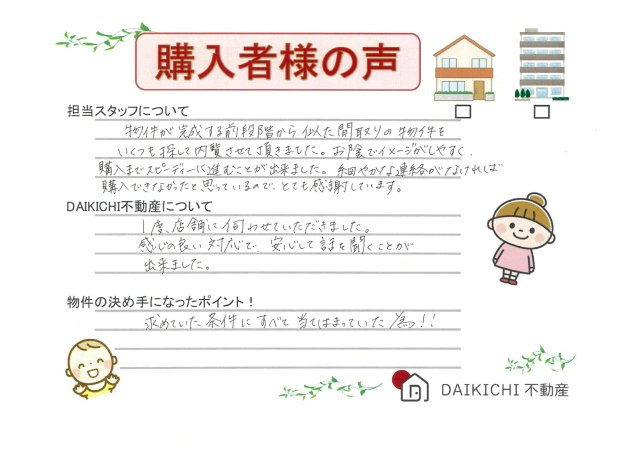 購入者様の声
担当スタッフについて
物件が完成する前段階から似た間取りの物件を
いくつも探して内覧させて頂きました。お陰でイメージがしやすく、
購入までスピーディーに進むことが出来ました。細やかな連絡がなければ
購入できなかったと思っているので、とても感謝しています。
DAIKICHI不動産について
1度、店舗に伺わせていただきました。
感じの良い対応で、安心して話を聞くことが
出来ました。
物件の決め手になったポイント！
求めていた条件にすべて当てはまっていた為!!
DAIKICHI 不動産